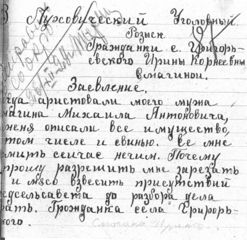 В Лысовический Уголовный
Розыск
Гражданки с. Григорь-
евского Ирины Корнеевны
Смагиной.
Заевление.
гда аристовали моего мужа
магина Михаила Антоновича,
меня описали все имущество,
том числе и евинью. Ее мне
рмить сейчас нечем. Почему
прошу разрешить мне зарезать
и мясо взвесить присутствии
сельсавета до разбора дела
ать. Грожданка села Григорь-
кого